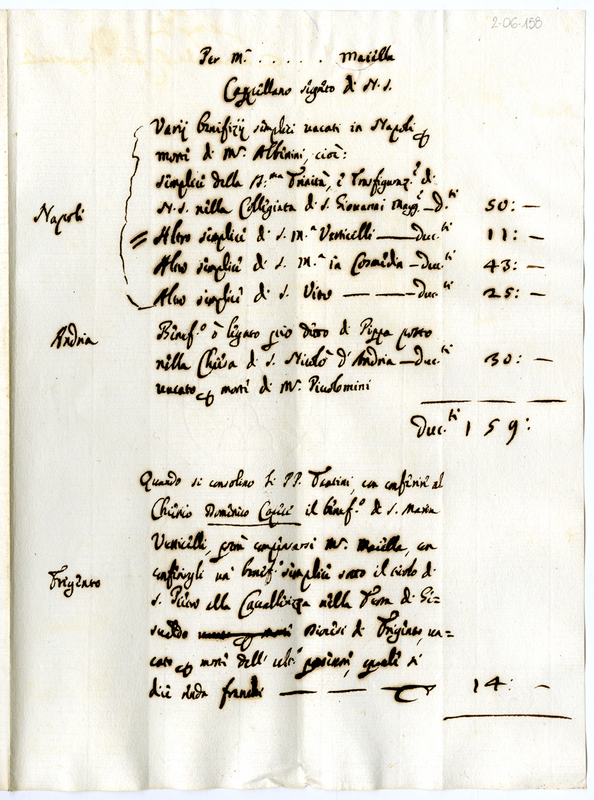 2-06-158
Per M.r . . . . . Maiella
Cappellano segreto di N. S.
Varij benefizij semplici vacati in Napoli p
morte di M.r Albinini, cioè:
Napoli
semplice della S.ma Trinità, e Trasfiguraz.e di
N. S. nella Collegiata di S. Giovanni Magg.e — D.ti 50: —
Altro semplice di S. M.a Verticelli — Duc.ti 11: —
Altro semplice di S. M.a in Cosmedin — Duc.ti 43: —
Altro semplice di S. Vito — Duc.ti 25: —
Andria
Benef.o ò legato pio detto di Pippa
nella Chiesa di S. Nicolò d'Andria — Duc.ti 30: —
vacato p morte di M.r Piccolomini
Duc.ti 159:
Quando si consolino li PP. Teatini, con conferire al
Chierico Domenico Capece il benef.o di S. Maria
Verticelli, potrà compensarsi M.r Maiella, con
Frigento
conferirgli un benef. semplice sotto il titolo di
S. Pietro alla Cavallerizza nella Terra di Ge=
sualdo Diocesi di Frigento, va=
cato p morte dell' quale si
dice renda franchi — — 14: —